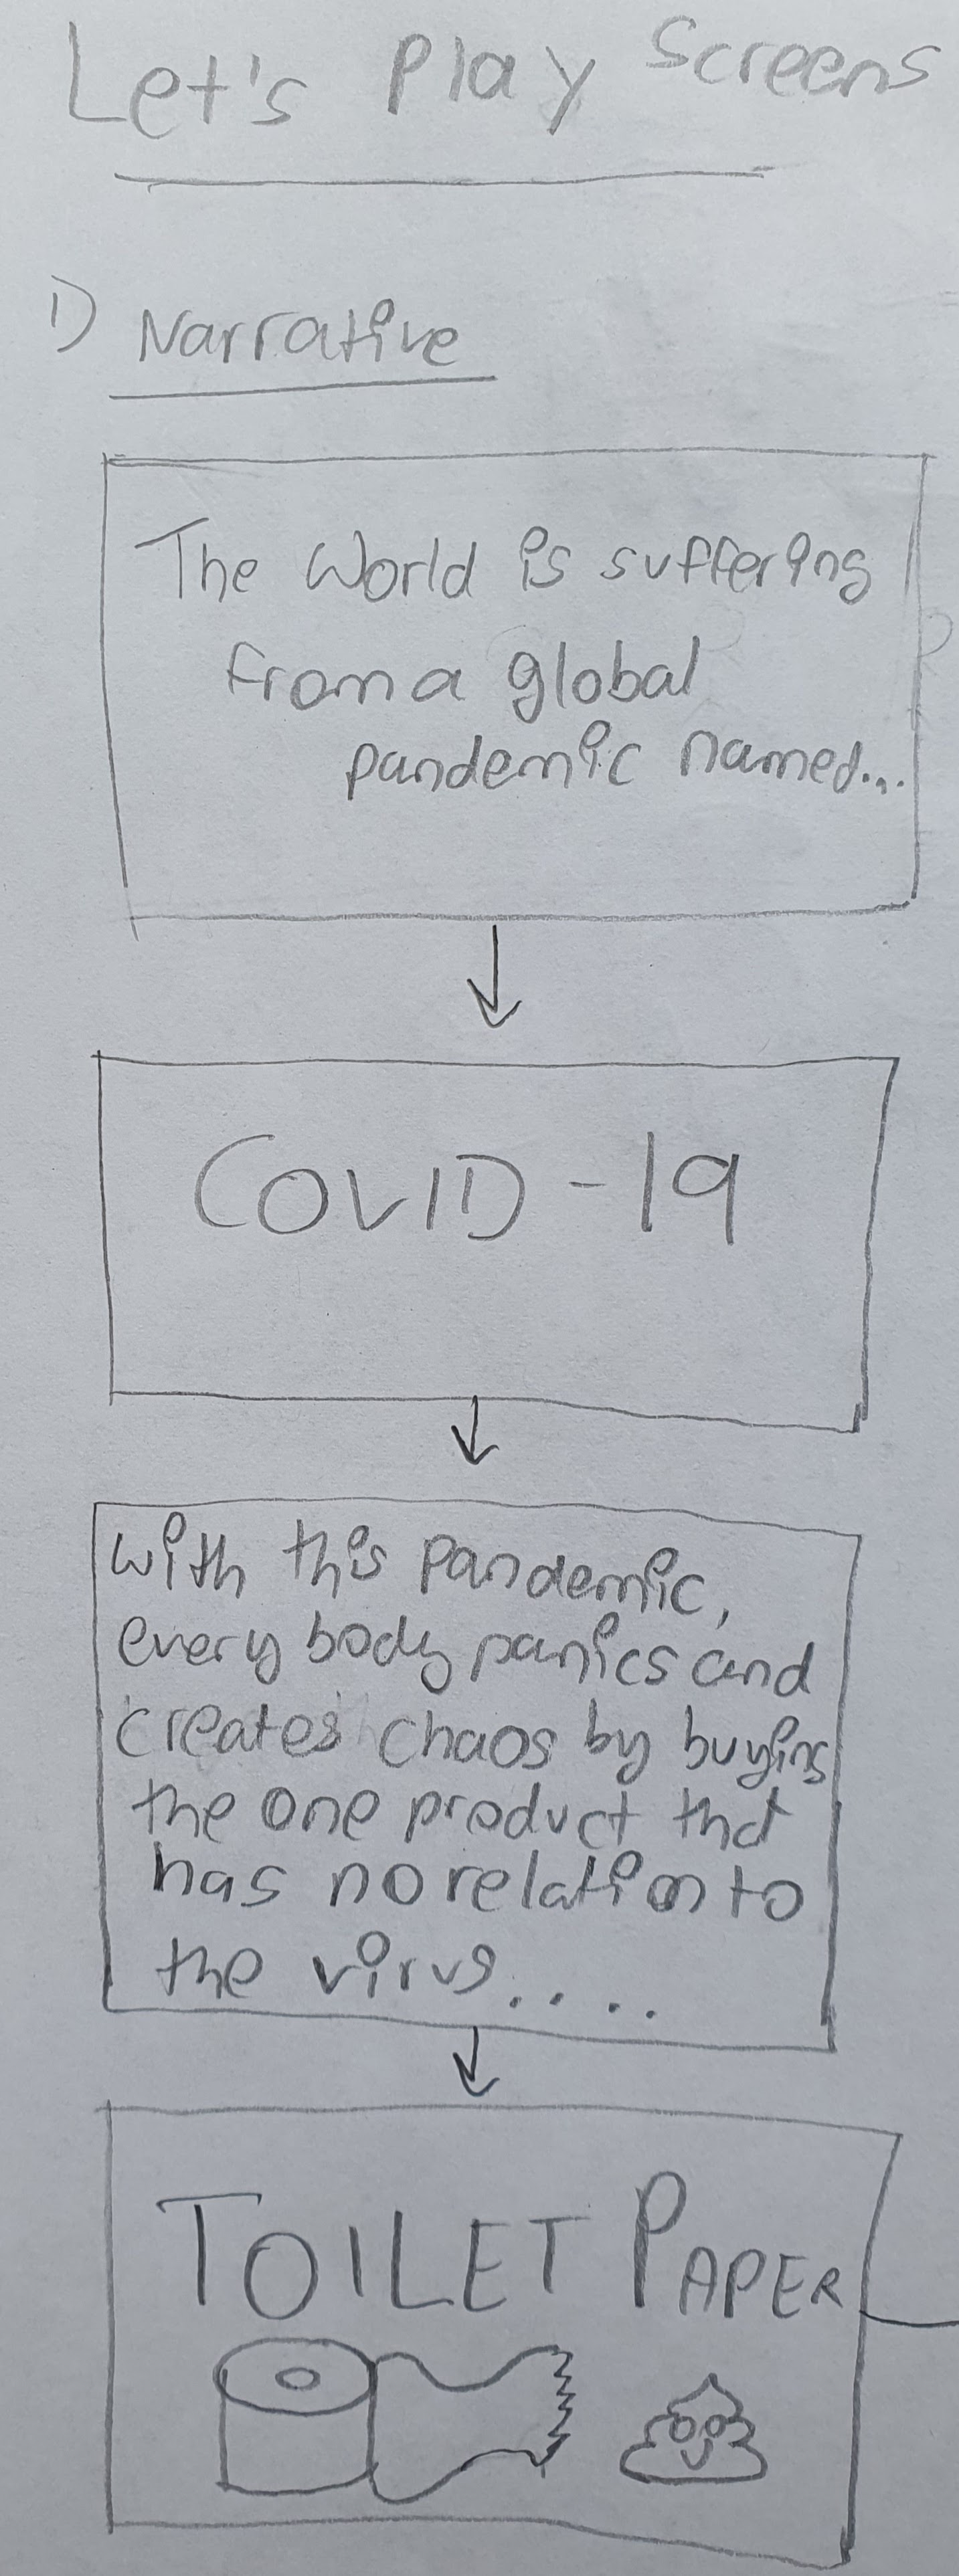 Let's Play Screens
1) Narrative
The World is suffering
from a global
pandemic named...
COVID-19
with this pandemic,
everybody panics and
creates chaos by buying
the one product that
has no relation to
the virus....
TOILET PAPER